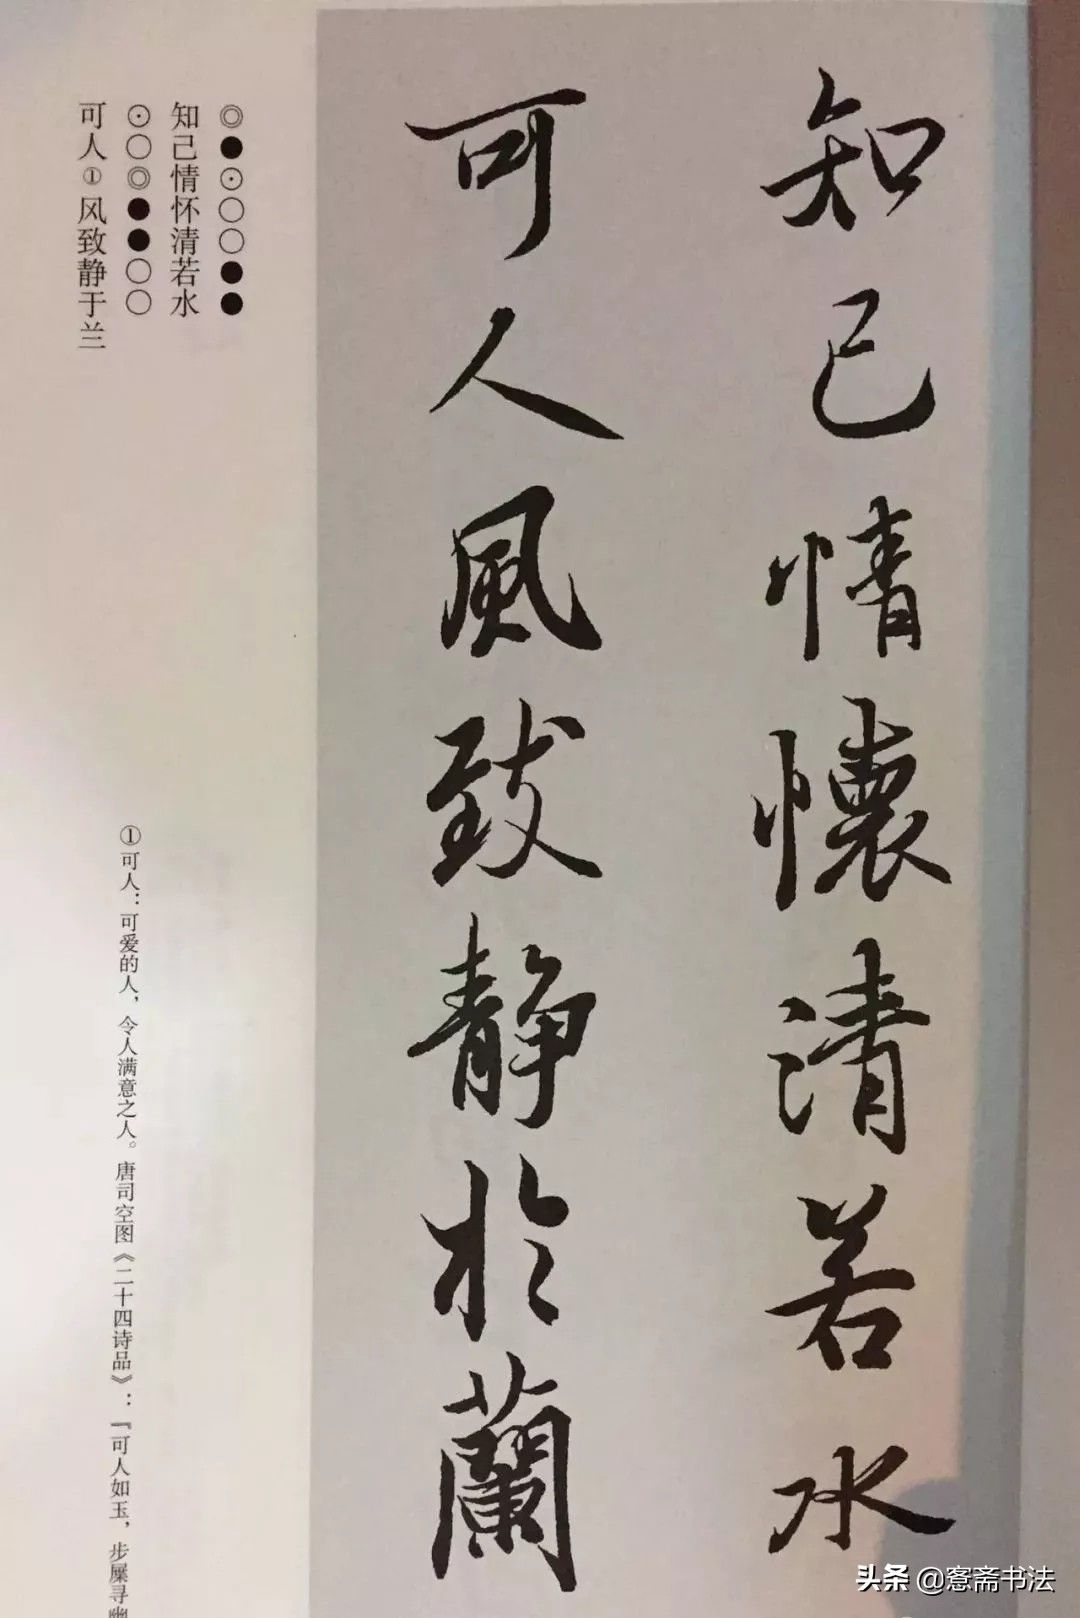 知己情懷清若水
可人風致靜於蘭
◎●⊙○○●●
知己情怀清若水
⊙○◎●●○○
可人①风致静于兰
①可人：可爱的人，令人满意之人。唐司空图《二十四诗品》：『可人如玉，步屧寻幽
头条 @愙斋书法